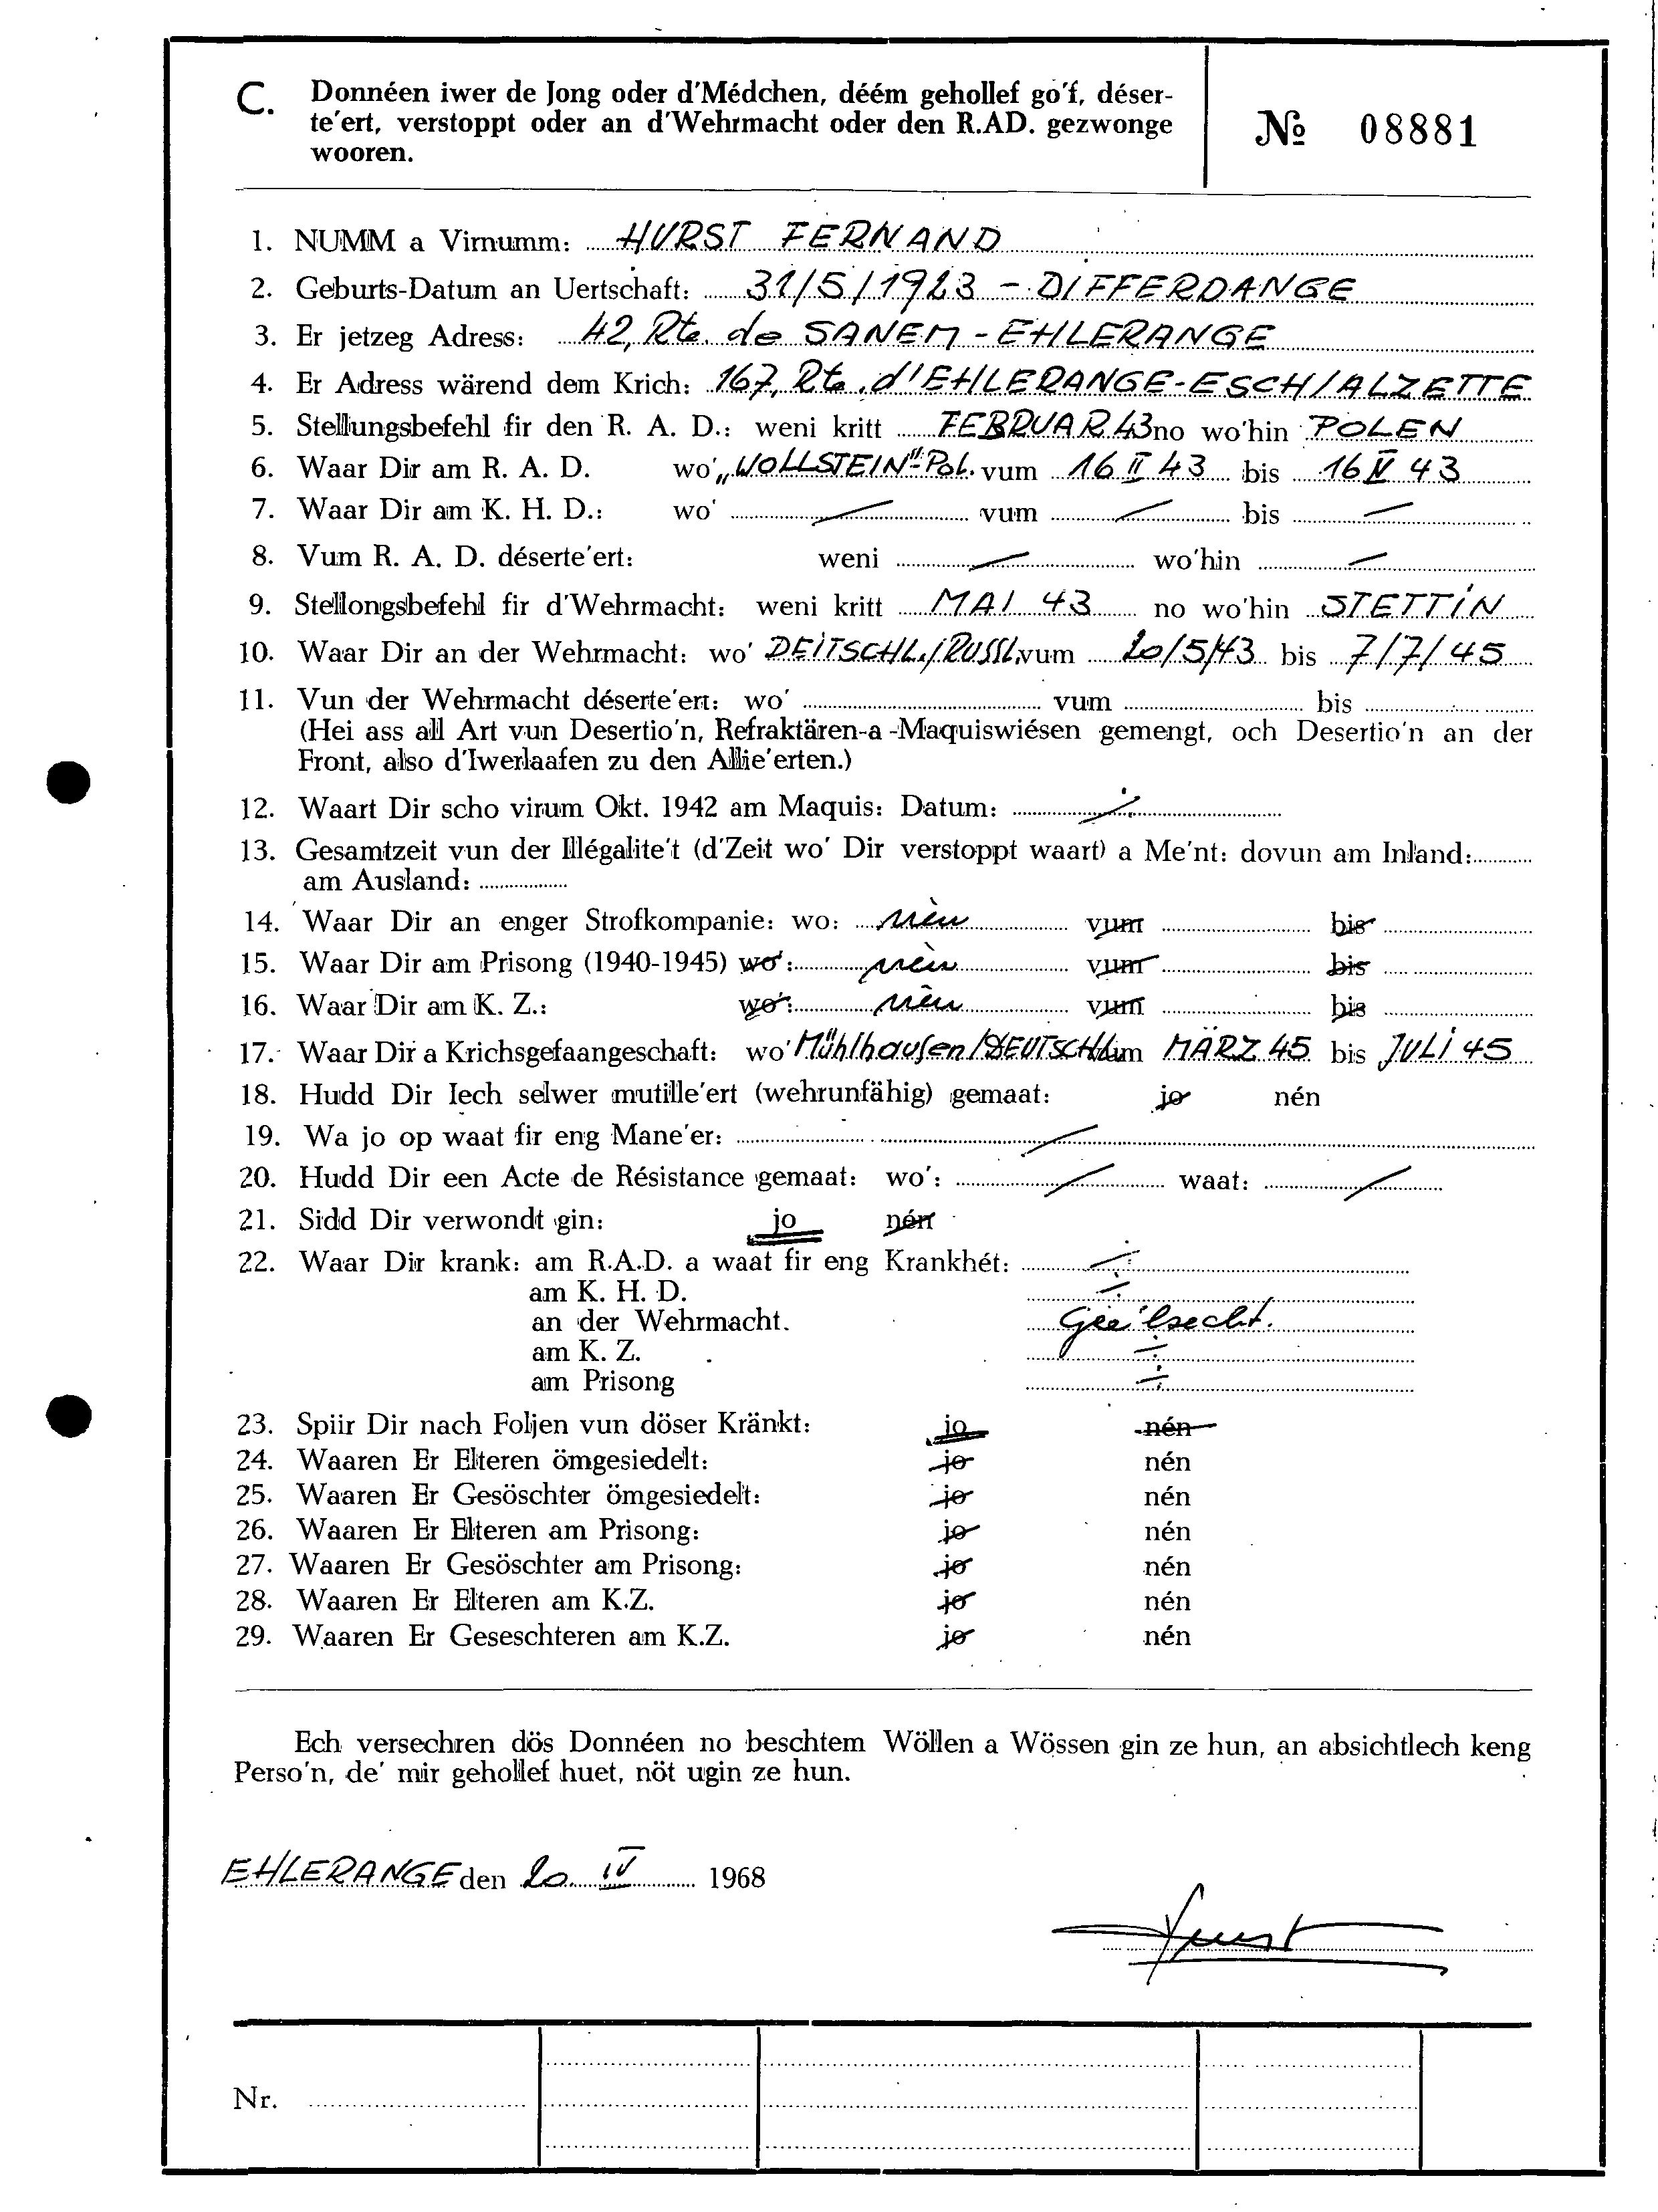 C. Donnéen iwer de Jong oder d'Médchen, déém gehollef go'f, déser-
te'ert, verstoppt oder an d'Wehrmacht oder den R.AD. gezwonge
wooren.
№ 08881
1. NUMM a Virnumm: HURST FERNAND
2. Geburts-Datum an Uertschaft: 31/5/1923 - DIFFERDANGE
3. Er jetzeg Adress: 42, Rte. de SANEM - EHLERANGE
4. Er Adress wärend dem Krich: 167, Rte. d'EHLERANGE - ESCH/ALZETTE
5. Stellungsbefehl fir den R. A. D.: weni kritt FEBRUAR 43 no wo'hin POLEN
6. Waar Dir am R. A. D. wo' „WOLLSTEIN"-Pol. vum 16 II 43 bis 16 IV 43
7. Waar Dir am K. H. D.: wo' — vum — bis —
8. Vum R. A. D. déserte'ert: weni — wo'hin —
9. Stellongsbefehl fir d'Wehrmacht: weni kritt MAI 43 no wo'hin STETTIN
10. Waar Dir an der Wehrmacht: wo' DEITSCHL./RUSSL. vum 20/5/43 bis 7/7/45
11. Vun der Wehrmacht déserte'ert: wo' vum bis
(Hei ass all Art vun Desertio'n, Refraktären-a-Maquiswiésen gemengt, och Desertio'n an der
Front, also d'Iwerlaafen zu den Allie'erten.)
12. Waart Dir scho virum Okt. 1942 am Maquis: Datum: ÷
13. Gesamtzeit vun der Illégalite't (d'Zeit wo' Dir verstoppt waart) a Me'nt: dovun am Inland:
am Ausland:
14. Waar Dir an enger Strofkompanie: wo: nèn vum bis
15. Waar Dir am Prisong (1940-1945) wo': nèn vum bis
16. Waar Dir am K. Z.: wo': nèn vum bis
17. Waar Dir a Krichsgefaangeschaft: wo' Mühlhausen/DEUTSCHL. vum MÄRZ 45 bis JULI 45
18. Hudd Dir Iech selwer mutille'ert (wehrunfähig) gemaat: jo nén
19. Wa jo op waat fir eng Mane'er: —
20. Hudd Dir een Acte de Résistance gemaat: wo': — waat: —
21. Sidd Dir verwondt gin: jo nén
22. Waar Dir krank: am R.A.D. a waat fir eng Krankhét: ÷
am K. H. D. ÷
an der Wehrmacht. Gee'lsecht.
am K. Z. ÷
am Prisong ÷
23. Spiir Dir nach Foljen vun döser Kränkt: jo nén
24. Waaren Er Elteren ömgesiedelt: jo nén
25. Waaren Er Gesöschter ömgesiedelt: jo nén
26. Waaren Er Elteren am Prisong: jo nén
27. Waaren Er Gesöschter am Prisong: jo nén
28. Waaren Er Elteren am K.Z. jo nén
29. Waaren Er Geseschteren am K.Z. jo nén
Ech versechren dös Donnéen no beschtem Wöllen a Wössen gin ze hun, an absichtlech keng
Perso'n, de' mir gehollef huet, nöt ugin ze hun.
EHLERANGE den 20. IV 1968
Hurst
Nr.